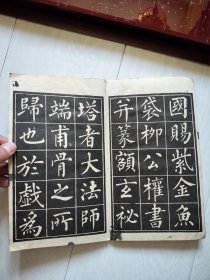 國賜紫金魚
袋柳公權書
并篆額玄秘
塔者大法師
端甫骨之所
歸也於戲為